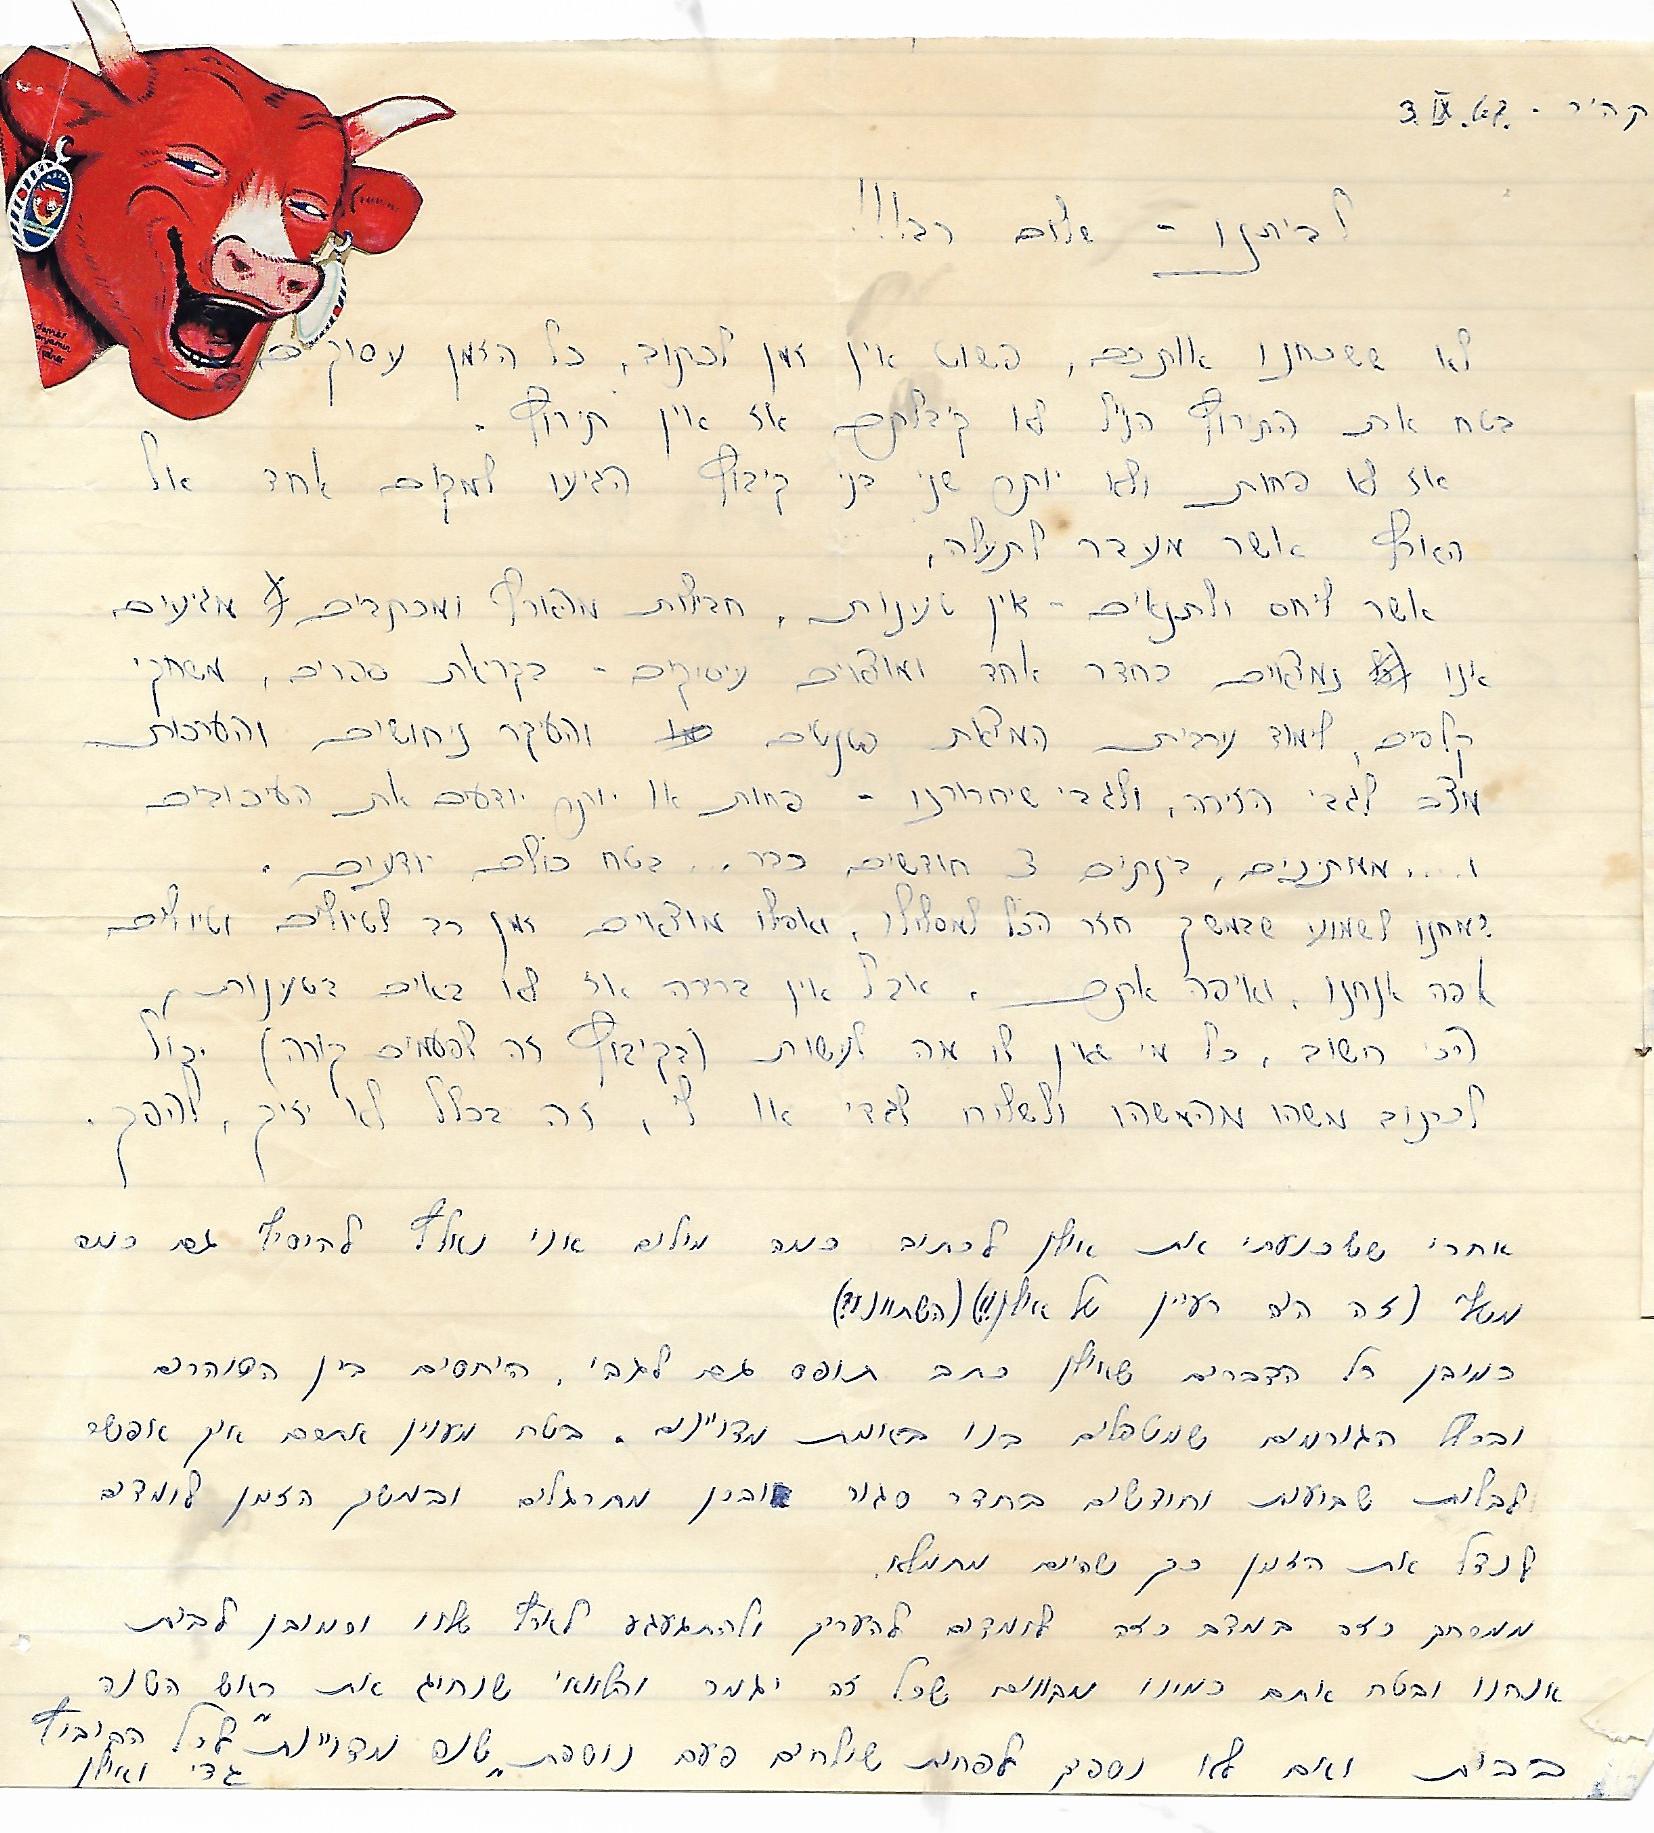 קהיר - 3.IX.69.
לביתנו - שלום רב!!!
לא ששכחנו אותכם, פשוט אין זמן לכתוב, כל הזמן עסוקים
בטח את התירוץ הנ״ל לא קיבלתם אז אין תירוץ.
אז לא פחות ולא יותר שני בני קיבוץ הגיעו למקום אחד אל
הארץ אשר מעבר לתעלה,
אשר ליחס ולתנאים - אין טענות, חבילות מהארץ ומכתבים מגיעים.
אינו נמצאים בחדר אחד ומוצאים עיסוקים - בקריאת ספרים, משחקי
קלפים, לימוד ערבית המצאת פטנטים והעיקר ניחושים והערכות
מצב לגבי הזירה, ולגבי שיחרורנו - פחות או יותר יודעים את העיכובים
ו.... ממתינים, דקים 3 חודשים כבר... בטח כולם יודעים.
שמחנו לשמוע שבמשק חזר הכל למסלולו, ואפילו מוצאים זמן רב לטיולים וטיולים
אפה אנחנו, ואיפה אתם. אבל אין ברירה אז לא באים בטענות,
הכי חשוב, כל מי שאין לו מה לעשות (בקיבוץ זה לפעמים קורה) יכול
לכתוב משהו מהמשהו ולשלוח לגדי או לי, זה בכלל לא יזיק, להיפך.
אחרי ששכנעתי את אילן לכתוב כמה מילים אני נאלץ להוסיף גם כמה
משלי (זה היה רעיון של אילן!!) (השתוונו?)
כמובן כל הדברים שאילן כתב תופס גם לגבי, היחסים בין הסוהרים
ובכלל הגורמים שמטפלים בנו באמת מצויינים. בטח מעניין אתכם איך אפשר
לבלות שבועות וחודשים בחדר סגור ובכן מתרגלים ובמשך הזמן לומדים
לנצל את הזמן כך שהיום מתמלא.
ממרחק כזה במצב כזה לומדים להעריך ולהתגעגע לארץ שלנו וכמובן לבית
אנחנו ובטח אתם כמונו מקווים שכל זה יגמר והלוואי שנחיג את ראש השנה
בבית ואם לא נספיק לפחות שולחים פעם נוספת "שנה מצויינת" לכל הקיבוץ
גדי ואילן